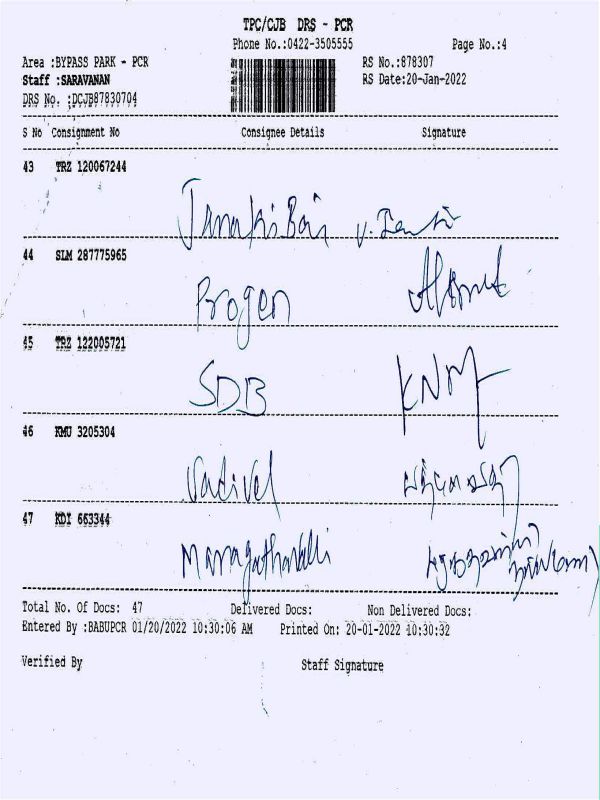 TPC/CJB DRS - PCR
Phone No.:0422-3505555 Page No.:4
Area :BYPASS PARK - PCR RS No.:878307
Staff :SARAVANAN RS Date:20-Jan-2022
DRS No. :DCJB87830704
S No Consignment No Consignee Details Signature
43 TRZ 120067244
Janaki Bai
44 SLM 287775965
Progen
45 TRZ 122005721
SDB KNM
46 KMU 3205304
Vadivel
47 KDI 663344
Maragathavalli
Total No. Of Docs: 47 Delivered Docs: Non Delivered Docs:
Entered By :BABUPCR 01/20/2022 10:30:06 AM Printed On: 20-01-2022 10:30:32
Verified By Staff Signature